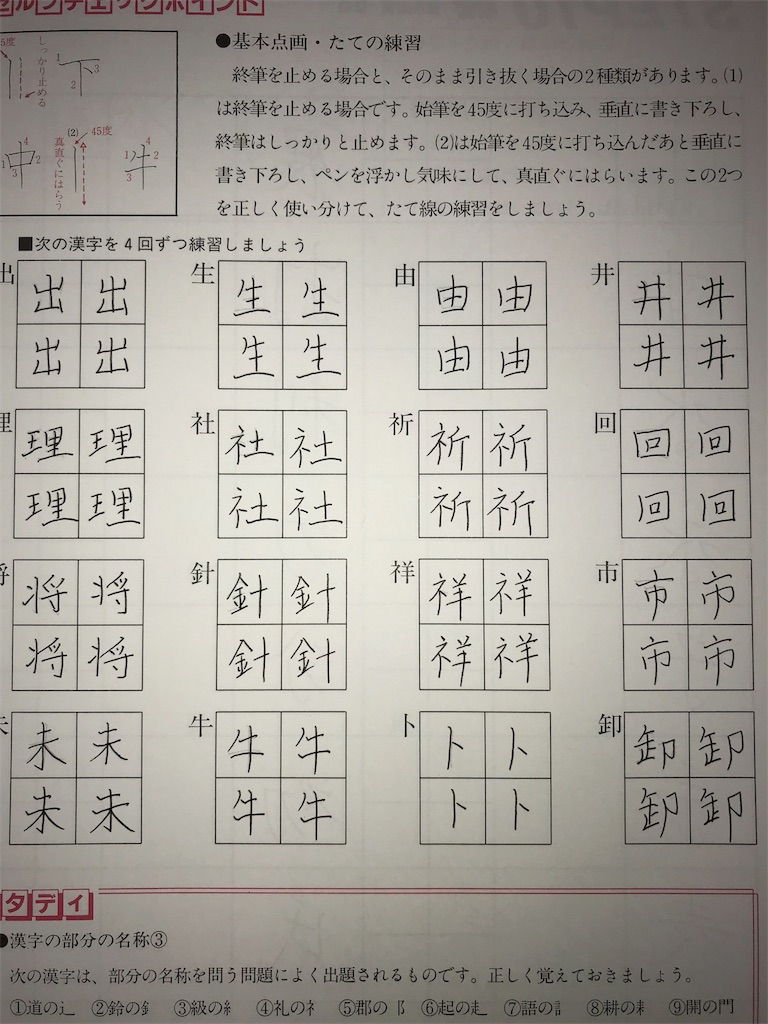 セルフチェックポイント
5度
しっかり止める
1
2
3
●基本点画・たての練習
終筆を止める場合と、そのまま引き抜く場合の2種類があります。(1)
は終筆を止める場合です。始筆を45度に打ち込み、垂直に書き下ろし、
終筆はしっかりと止めます。(2)は始筆を45度に打ち込んだあと垂直に
書き下ろし、ペンを浮かし気味にして、真直ぐにはらいます。この2つ
を正しく使い分けて、たて線の練習をしましょう。
中
1
2
3
4
(2)
45度
真直ぐにはらう
牛
1
2
3
4
■次の漢字を4回ずつ練習しましょう
出 出 出 生 生 生 由 由 由 井 井 井
出 出 生 生 由 由 井 井
理 理 理 社 社 社 祈 祈 祈 回 回 回
理 理 社 社 祈 祈 回 回
将 将 将 針 針 針 祥 祥 祥 市 市 市
将 将 針 針 祥 祥 市 市
未 未 未 牛 牛 牛 ト ト ト 卸 卸 卸
未 未 牛 牛 ト ト 卸 卸
タディ
●漢字の部分の名称③
次の漢字は、部分の名称を問う問題によく出題されるものです。正しく覚えておきましょう。
①道の辶 ②鈴の釒 ③級の糹 ④礼の礻 ⑤郡の阝 ⑥起の走 ⑦語の訁 ⑧耕の耒 ⑨開の門